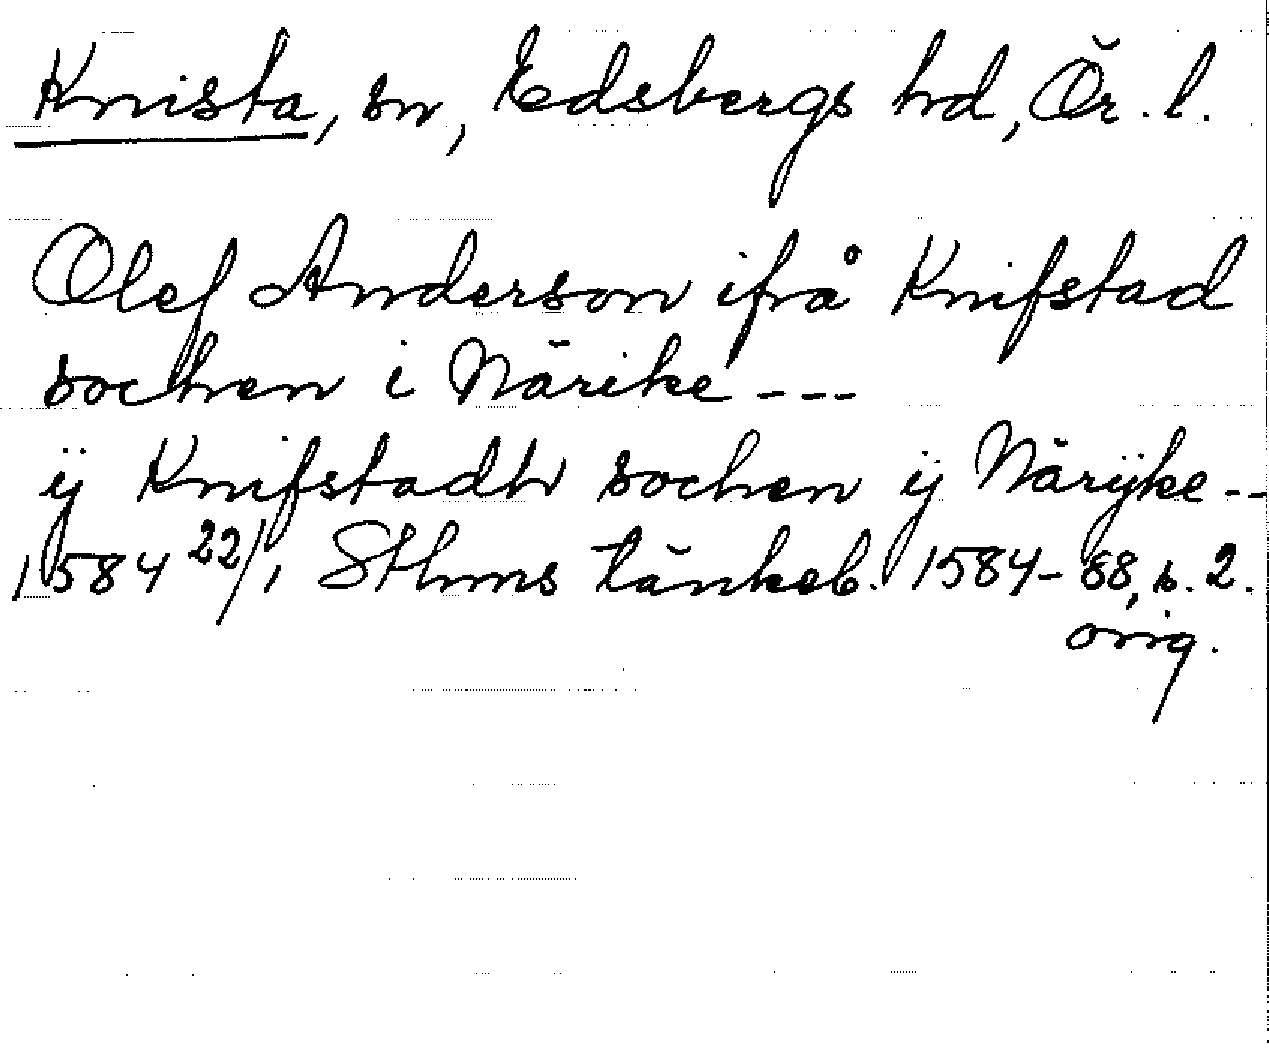 Knista, sn, Edsbergs hd, Ör. l.
Olef Anderson ifrå Knifstad
sochen i Närike ---
ij Knifstadh sochen ij Närijke --
1584 22/1, Sthms tänkeb. 1584-88, s. 2.
orig.